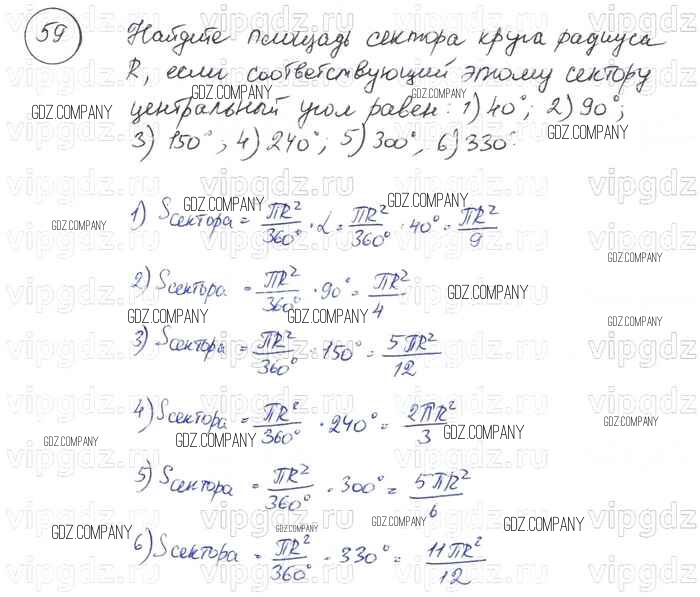 59
Найдите площадь сектора круга радиуса
R, если соответствующий этому сектору
центральный угол равен: 1) 40°; 2) 90°;
3) 150°, 4) 240°; 5) 300°, 6) 330°.
1) Sсектора = πR²/360° · α = πR²/360° · 40° = πR²/9
2) Sсектора = πR²/360° · 90° = πR²/4
3) Sсектора = πR²/360° · 150° = 5πR²/12
4) Sсектора = πR²/360° · 240° = 2πR²/3
5) Sсектора = πR²/360° · 300° = 5πR²/6
6) Sсектора = πR²/360° · 330° = 11πR²/12
GDZ.COMPANY
vipgdz.ru